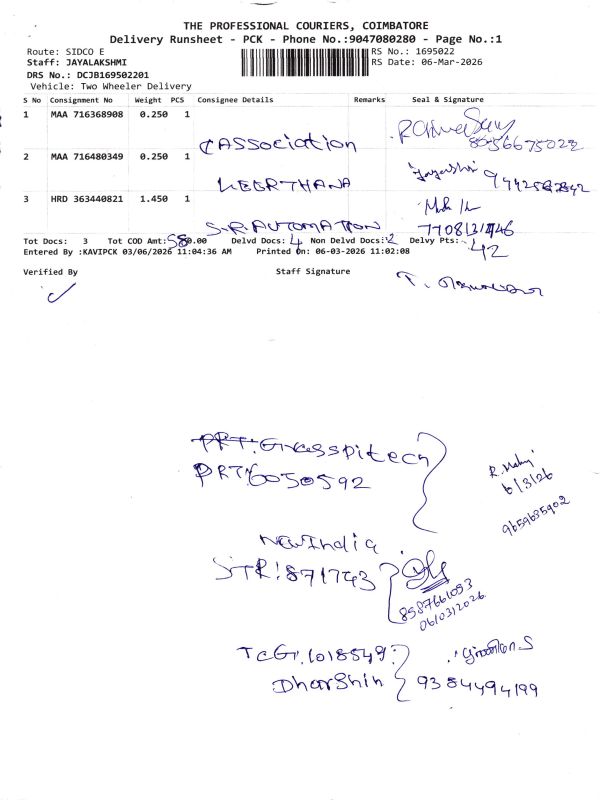 THE PROFESSIONAL COURIERS, COIMBATORE
Delivery Runsheet - PCK - Phone No.:9047080280 - Page No.:1
Route: SIDCO E
RS No.: 1695022
Staff: JAYALAKSHMI
RS Date: 06-Mar-2026
DRS No.: DCJB169502201
Vehicle: Two Wheeler Delivery
S No Consignment No Weight PCS Consignee Details Remarks Seal & Signature
1 MAA 716368908 0.250 1
CASSociation
2 MAA 716480349 0.250 1
KEERTHANA
3 HRD 363440821 1.450 1
S.R.AUTOMATION
Tot Docs: 3 Tot COD Amt: 0.00 Delvd Docs: 4 Non Delvd Docs: 2 Delvy Pts: 42
Entered By :KAVIPCK 03/06/2026 11:04:36 AM Printed On: 06-03-2026 11:02:08
Verified By Staff Signature
PRT:6050592
6/3/26
9659635902
New India
STR:871743
8587661093
06/03/2026
1018549
Dharshin
9384494199